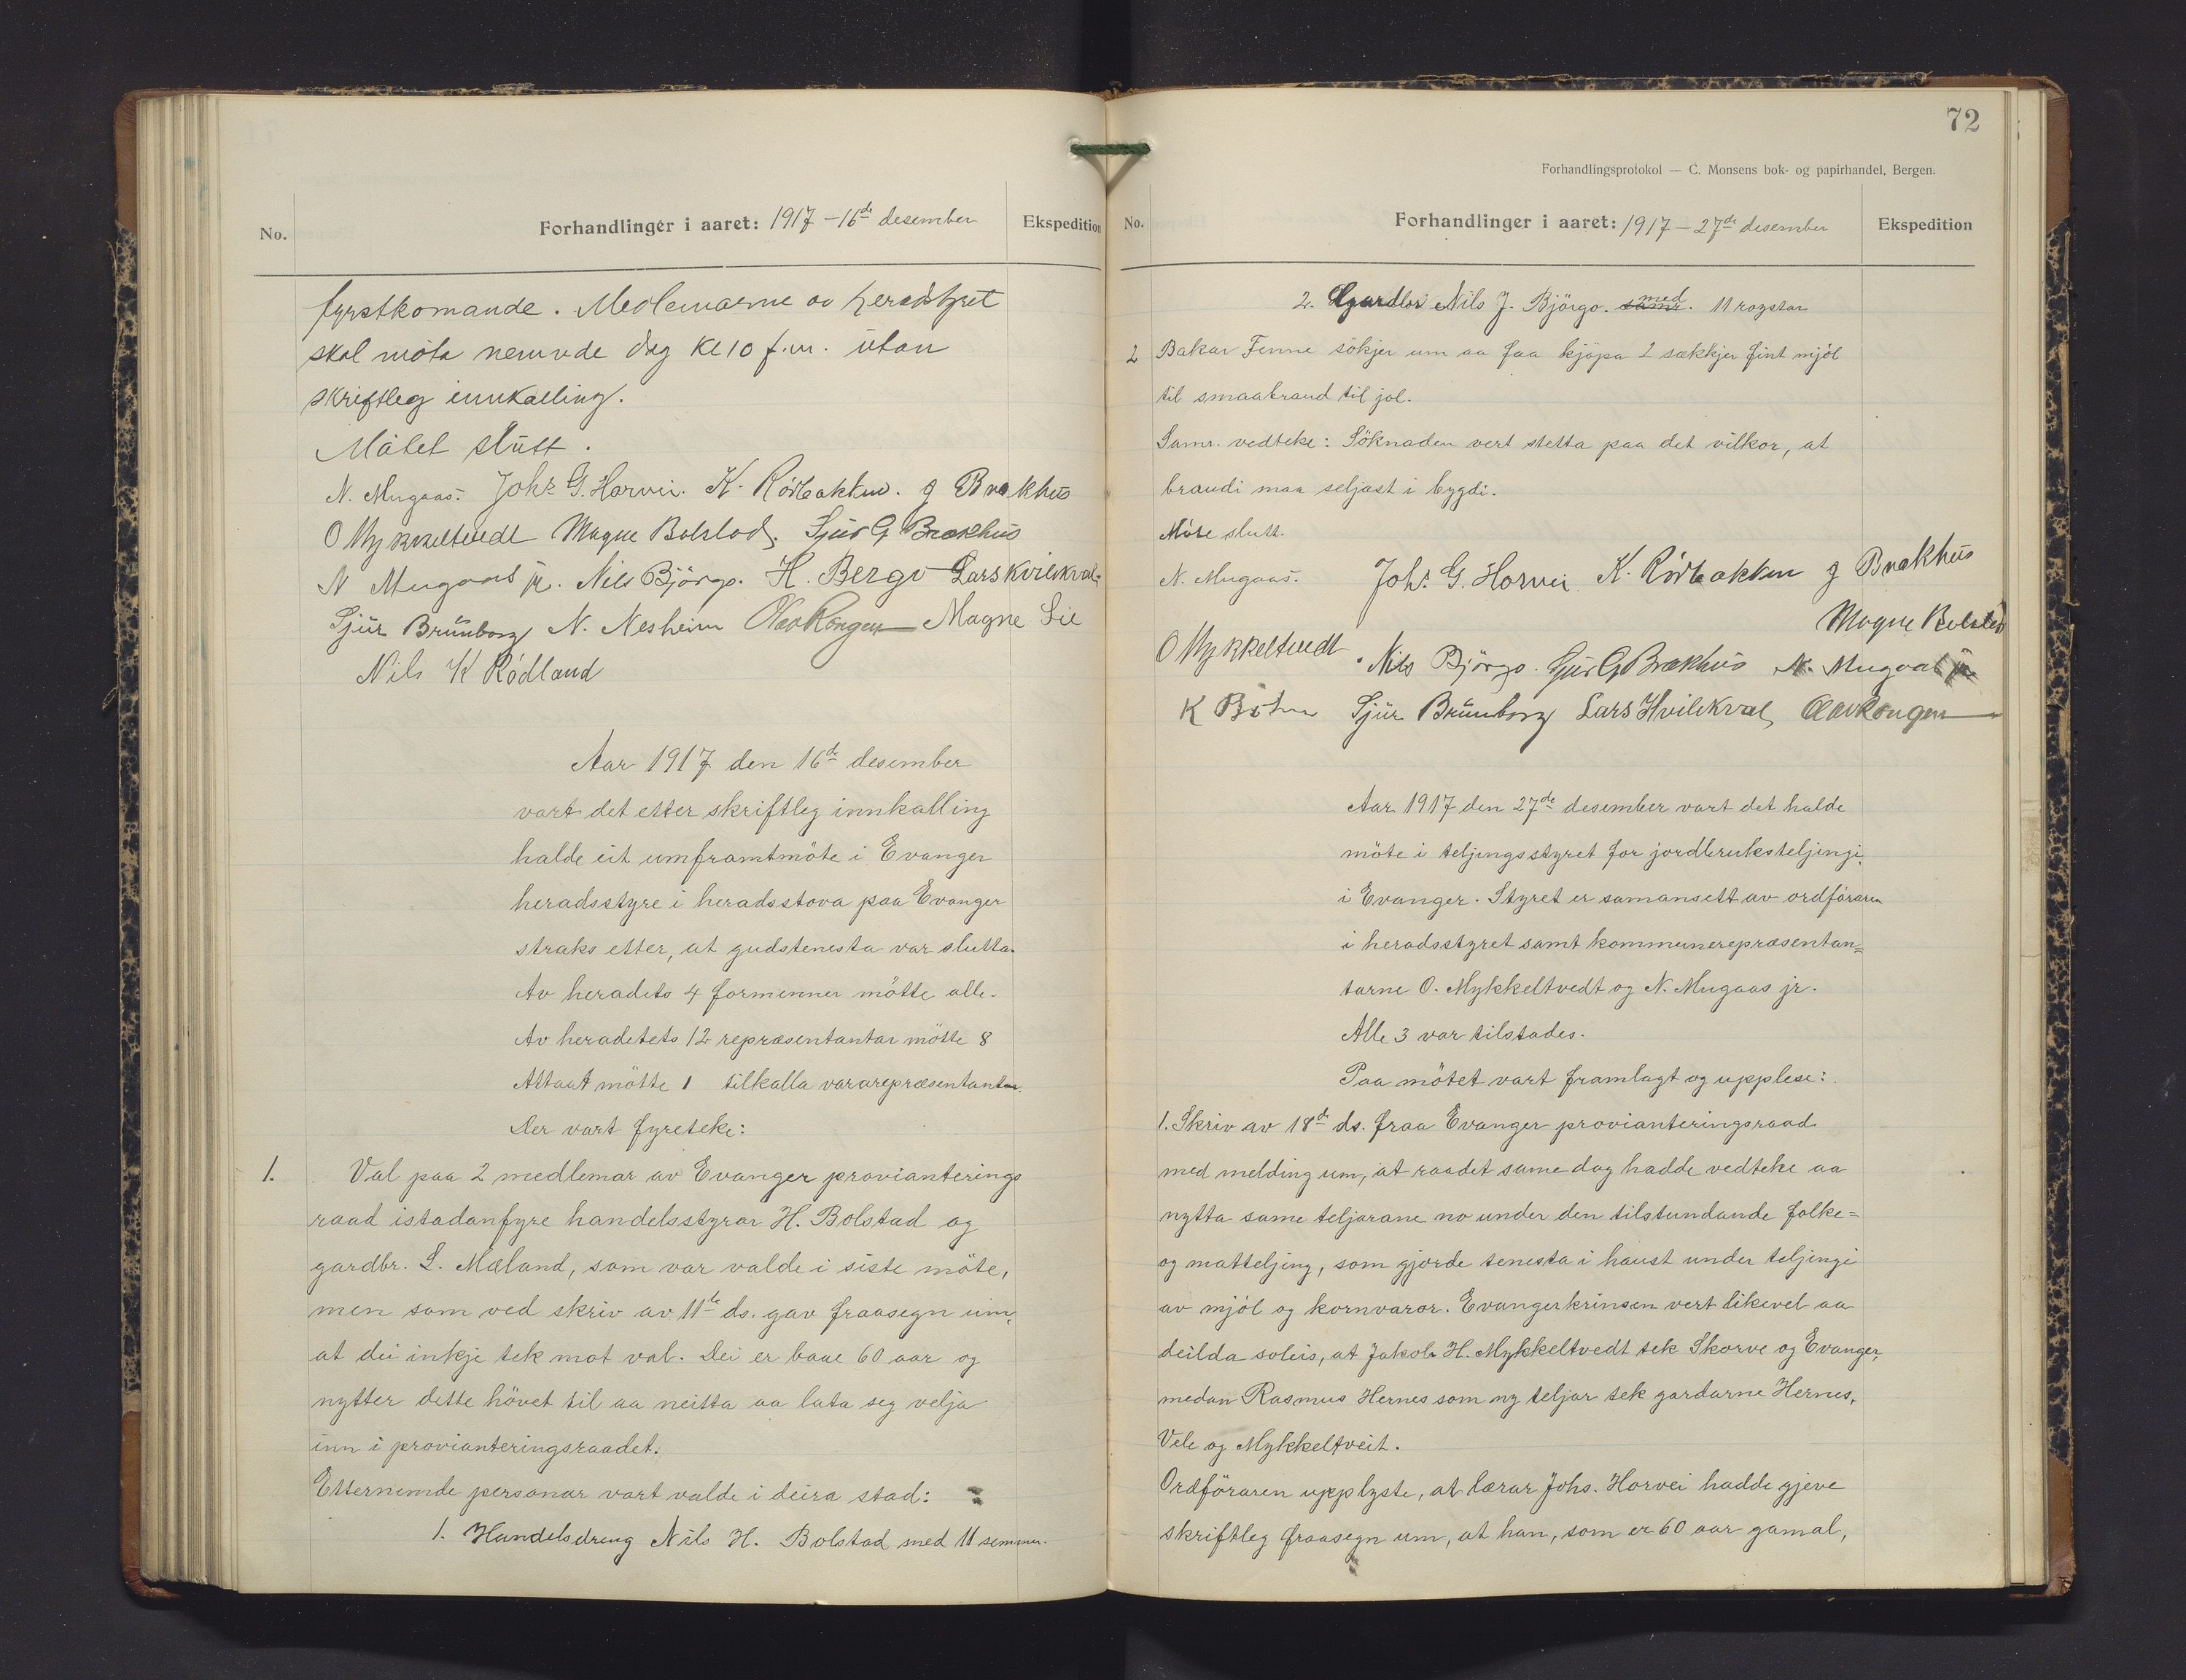 No.
Forhandlinger i aaret: 1917 - 16de desember
Ekspedition
fyrstkomande. Medlemaerne av heradstyret
skal møta nemnde dag Kl 10 f.m. utan
skriftleg innkalling.
Møtet slutt.
N. Mugaas. Johs. G. Horvei. K. Rödbakken. J Brækhus
O Mykkeltvedt Magne Bolstad. Sjur G Brækhus
N Mugaas jr. Nils Björgo. H. Bergo Lars Kvilekval
Sjur Brunborg N. Nesheim Olav Rongen Magne Lie
Nils K Rødland
Aar 1917 den 16de desember
vart det etter skriftleg innkalling
halde eit umframtmöte i Evanger
heradsstyre i heradsstova paa Evanger
straks etter, at gudstenesta var slutta.
Av heradets 4 formenner mötte alle.
Av heradetets 12 repræsentantar mötte 8
Attaat mötte 1 tilkalla vararepræsentantar.
Der vart fyreteke:
1. Val paa 2 medlemar av Evanger provianterings
raad istadanfyre handelsstyrar H. Bolstad og
gardbr. L. Mæland, som var valde i siste möte,
men som ved skriv av 11te ds. gav fraasegn um,
at dei inkje tek mot val. Dei er baae 60 aar og
nytter dette hövet til aa neitta aa lata seg velja
inn i provianteringsraadet.
Etternemde personar vart valde i deira stad:
1. Handelsdreng Nils H. Bolstad med 11 semmer.
72
Forhandlingsprotokol — C. Monsens bok- og papirhandel, Bergen.
No.
Forhandlinger i aaret: 1917 - 27de desember
Ekspedition
2. Gardbr Nils J. Björgo. samr. med 11 røystar
2 Bakar Fenne sökjer um aa faa kjöpa 2 sækkjer fint mjöl
til smaabraud til jol.
Samr. vedteke: Söknaden vert stetta paa det vilkor, at
braudi maa seljast i bygdi.
Möte slutt.
N. Mugaas. Johs. G. Horvei. K. Rödbakken J Brækhus
Magne Bolstad
O Mykkeltvedt. Nils Björgo. Sjur G Brækhus N. Mugaas jr
K Sjur Brunborg Lars Kvilekval, Olav Rongen
Aar 1917 den 27de desember vart det halde
möte i teljingsstyret for jordbruksteljingi
i Evanger. Styret er samansett av ordföraren
i heradsstyret samt kommunerepræsentan=
tarne O. Mykkeltvedt og N. Mugaas jr.
Alle 3 var tilstades.
Paa mötet vart framlagt og upplese:
1. Skriv av 18de ds. fraa Evanger provianteringsraad
med melding um, at raadet same dag hadde vedteke aa
nytta same teljarane no under den tilstundande folke=
og matteljing, som gjorde tenesta i haust under teljingi
av mjöl og kornvaror. Evangerkrinsen vert likevel aa
deilda soleis, at Jakob H. Mykkeltvedt tek Skorve og Evanger,
medan Rasmus Hernes som ny teljar tek gardarne Hernes,
Vele og Mykkeltveit.
Ordföraren upplyste, at lærar Johs. Horvei hadde gjeve
skriftleg fraasegn um, at han, som er 60 aar gamal,